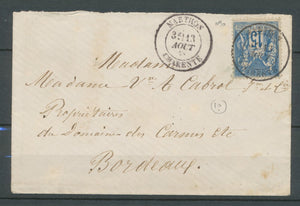 MARTHON
3E 13
AOUT
CHARENTE
15
Madame
Madame Vve A Cabrol Jne et Cie
Propriétaires
du Domaine des Carmes etc
Bordeaux